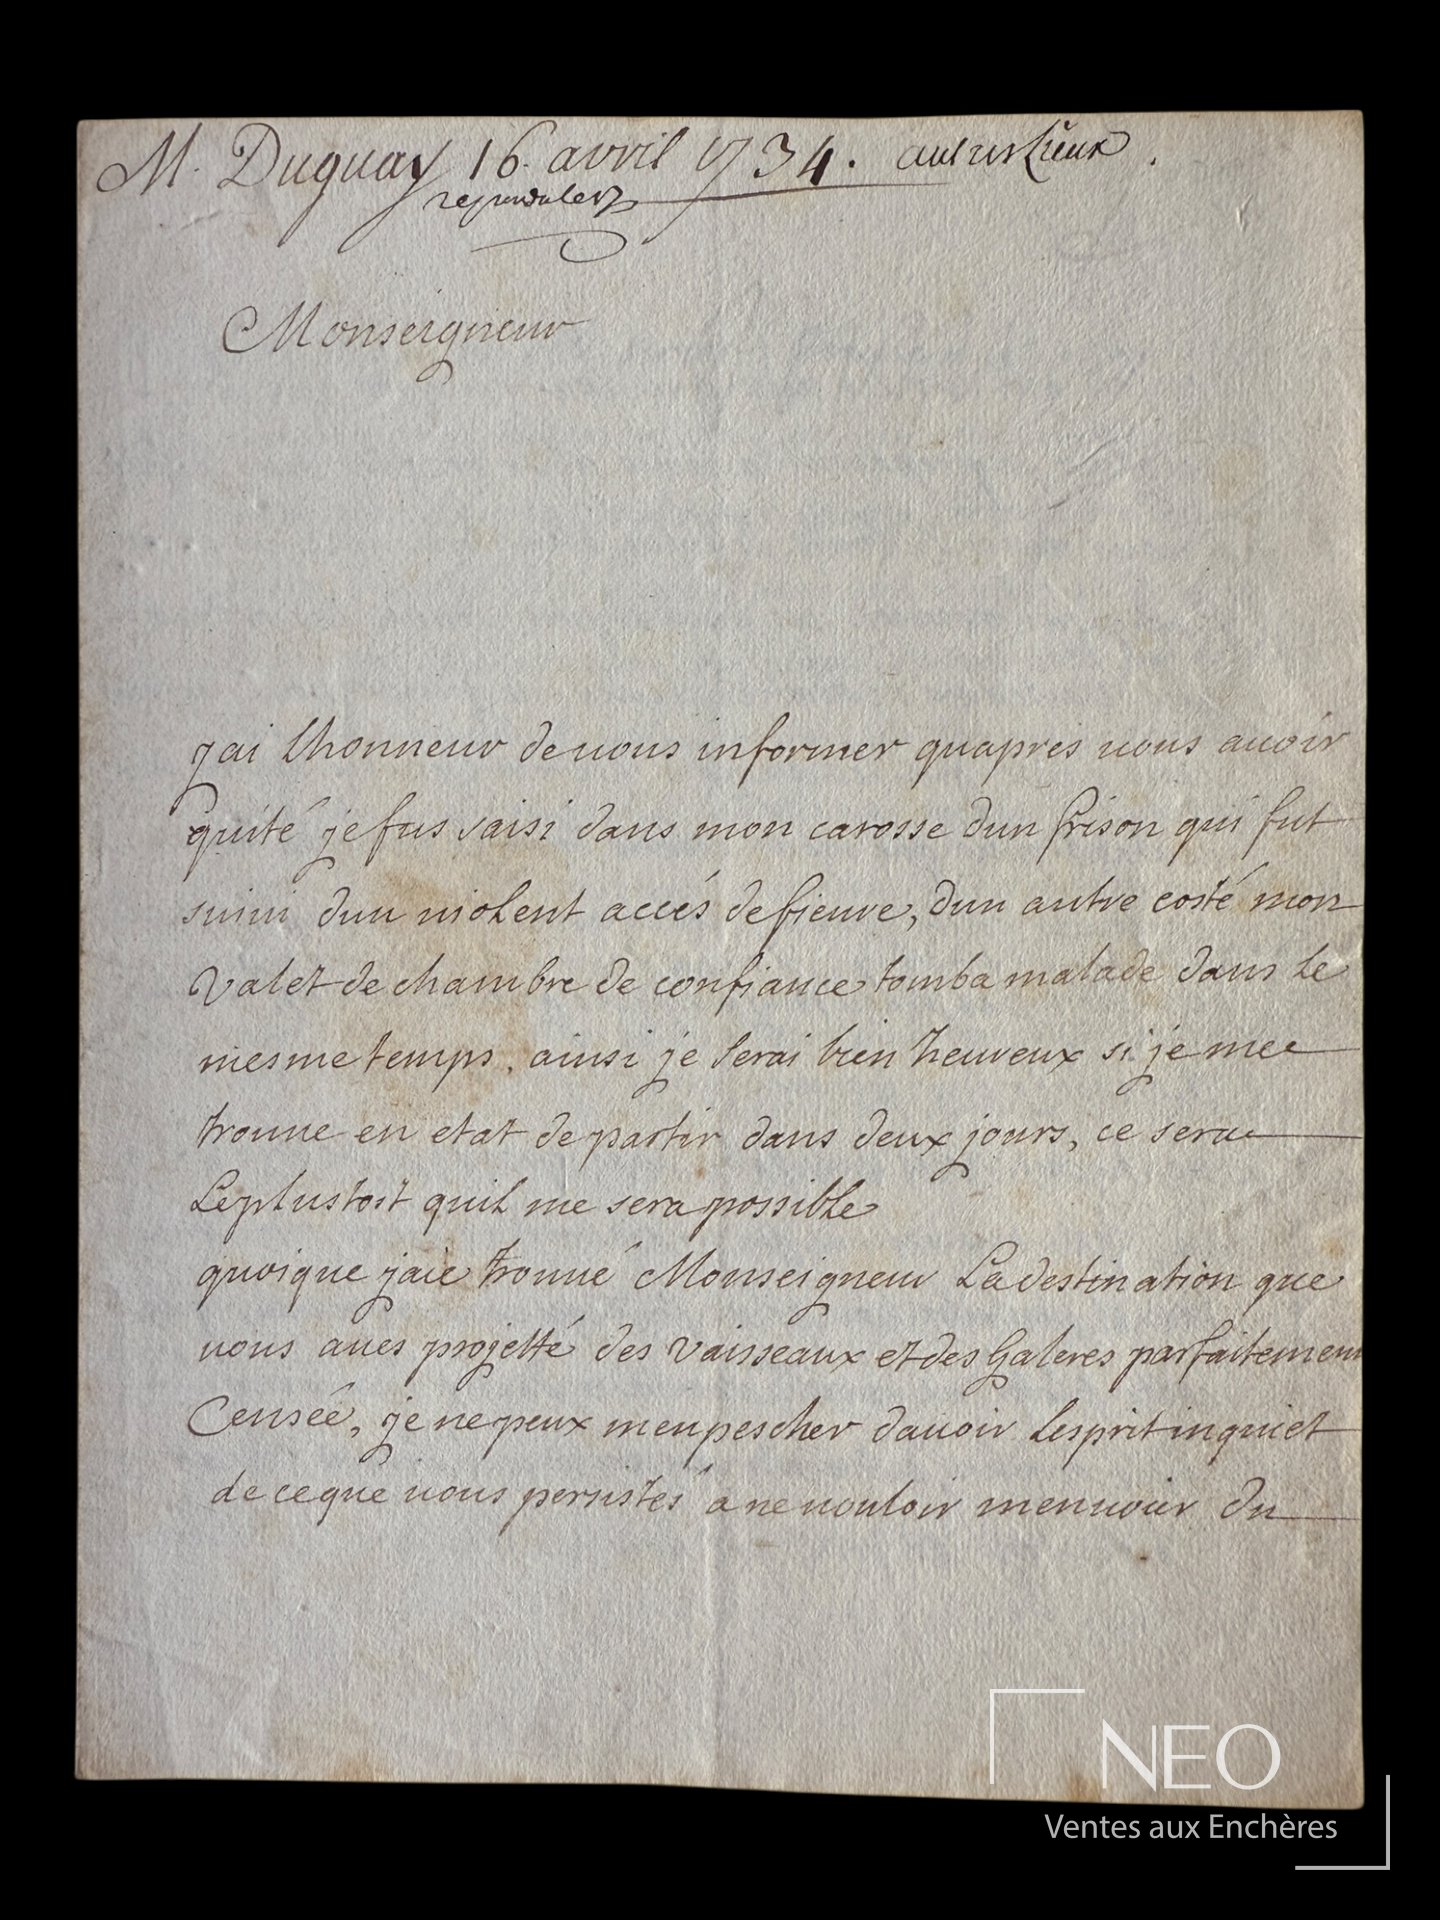 M. Duguay 16. avril 1734.
Monseigneur
jai lhonneur de uous informer quapres uous auoir
quité je fus saisi dans mon carosse dun frison qui fut
suiui dun uiolent accés de fieure, dun autre costé mon
valet de chambre de confiance tomba malade dans le
mesme temps, ainsi je serai bien heureux si je me
trouue en etat de partir dans deux jours, ce sera
le plustost quil me sera possible
quoique jaie trouué Monseigneur la destination que
uous aues projetté des vaisseaux et des galeres parfaitement
censée, je ne peux menpescher dauoir lesprit inquiet
de ce que uous persistés a ne uouloir menuoier du
NEO
Ventes aux Enchères